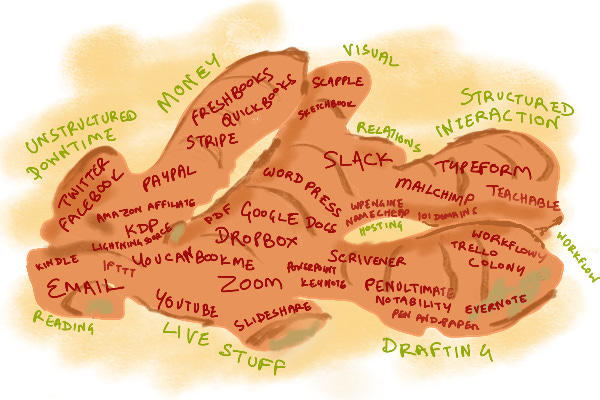 VISUAL
MONEY
SCAPPLE
FRESHBOOKS
QUICKBOOKS
SKETCHBOOK
STRUCTURED
INTERACTION
UNSTRUCTURED
DOWNTIME
STRIPE
RELATIONS
TWITTER
FACEBOOK
PAYPAL
SLACK
TYPEFORM
WORDPRESS
MAILCHIMP
TEACHABLE
AMAZON AFFILIATE
PDF
GOOGLE DOCS
WPENGINE
NAMECHEAP
101DOMAINS
HOSTING
KDP
LIGHTNINGSOURCE
DROPBOX
WORKFLOWY
TRELLO
COLONY
WORKFLOW
KINDLE
IFTTT
YOUCANBOOKME
POWERPOINT
KEYNOTE
SCRIVENER
EMAIL
ZOOM
PENULTIMATE
NOTABILITY
EVERNOTE
PEN AND PAPER
YOUTUBE
SLIDESHARE
READING
LIVE STUFF
DRAFTING